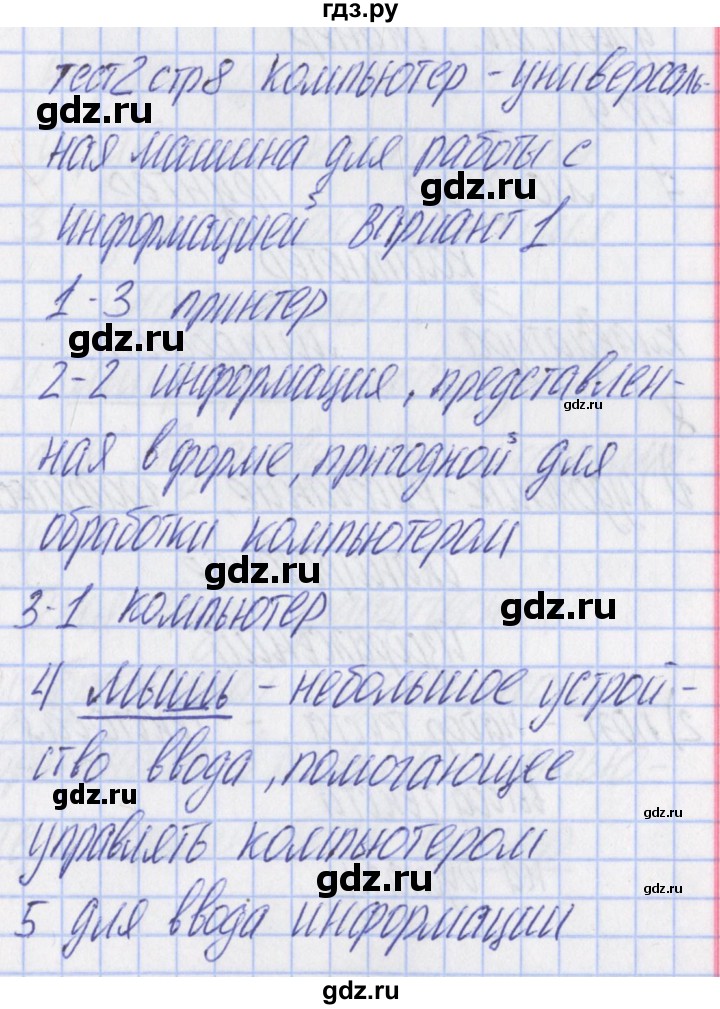 гдз.ру
тест 2 стр 8 компьютер - универсаль-
ная машина для работы с
gdz.ru
информацией вариант 1
1-3 принтер
gdz.ru
2-2 информация, представлен-
gdz.ru
ная в форме, пригодной для
обработки компьютером
gdz.ru
3-1 компьютер
gdz.ru
4 мышь - небольшое устрой-
ство ввода, помогающее
gdz.ru
gdz.ru
управлять компьютером
gdz.ru
gdz.ru
5 для ввода информации
gdz.ru